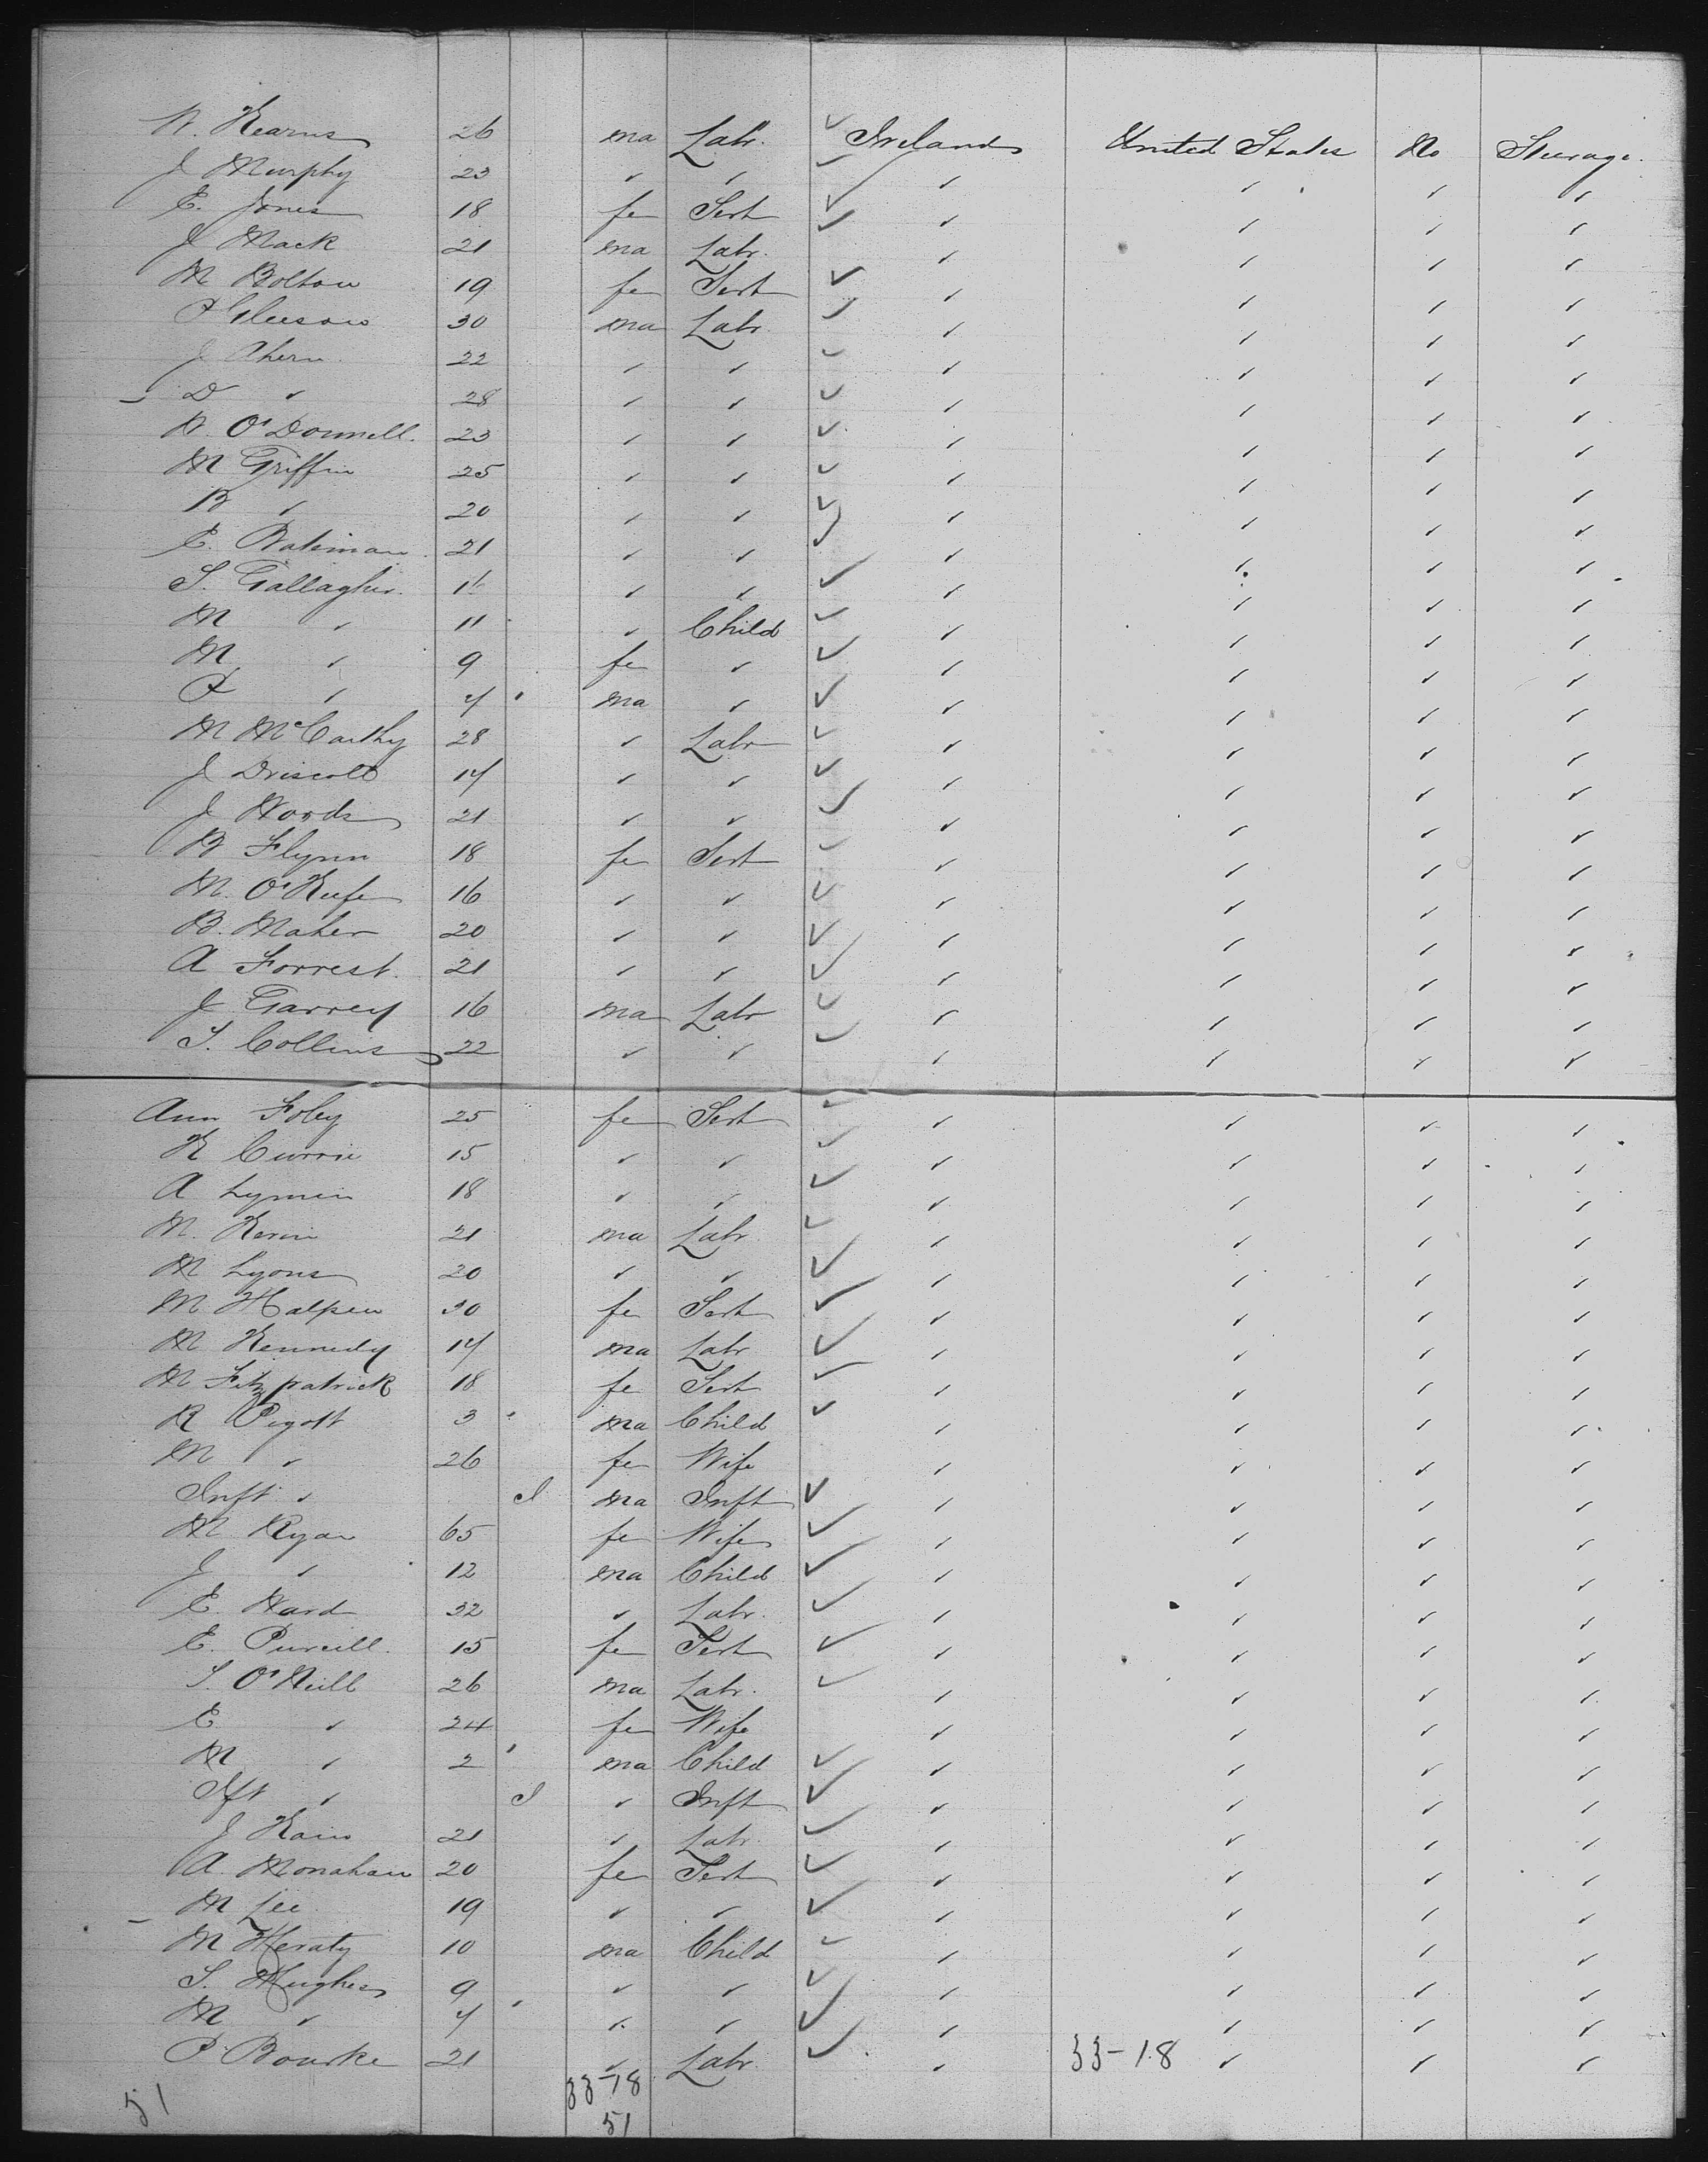 W. Kearns 26 ma Labr. ✓ Ireland United States No Steerage.
J Murphy 23 " " ✓ " " " "
E. Jones 18 fe Sert ✓ " " " "
J Mack 21 ma Labr. ✓ " " " "
M Bolton 19 fe Sert ✓ " " " "
P Gleeson 30 ma Labr ✓ " " " "
J Ahern 22 " " ✓ " " " "
D " 28 " " ✓ " " " "
W. O'Donnell. 23 " " ✓ " " " "
M Griffin 25 " " ✓ " " " "
B " 20 " " ✓ " " " "
E. Bateman 21 " " ✓ " " " "
S. Gallagher. " " ✓ " " " "
M " 11 " Child ✓ " " " "
M " 9 fe " ✓ " " " "
P " 4 ma " ✓ " " " "
M McCarthy 28 " Labr ✓ " " " "
J Driscoll 14 " " ✓ " " " "
J Woods 21 " " ✓ " " " "
B Flynn 18 fe Sert ✓ " " " "
M. O'Keefe 16 " " ✓ " " " "
B. Maher 20 " " ✓ " " " "
A Forrest. 21 " " ✓ " " " "
J Garvey 16 ma Labr ✓ " " " "
S. Collins 22 " " ✓ " " " "
Ann Foley 25 fe Sert ✓ " " " "
K Currie 15 " " ✓ " " " "
A 18 " " ✓ " " " "
M. Kevin 21 ma Labr. ✓ " " " "
M Lyons 20 " " ✓ " " " "
M Halpen 30 fe Sert ✓ " " " "
M Kennedy 14 ma Labr ✓ " " " "
M Fitzpatrick 18 fe Sert ✓ " " " "
R Pigott 3 ma Child ✓ " " " "
M " 26 fe Wife " " " "
Inft " I ma Inft ✓ " " " "
M Ryan 65 fe Wife ✓ " " " "
J " 12 ma Child ✓ " " " "
E. Ward 32 " Labr. ✓ " " " "
E. Purcill. 15 fe Sert ✓ " " " "
S. O'Neill 26 ma Labr. ✓ " " " "
E " 24 fe Wife " " " "
M " 2 ma Child ✓ " " " "
Ift " I " Inft ✓ " " " "
J Kain 21 " Labr. ✓ " " " "
A. Monahan 20 fe Sert ✓ " " " "
M Lee 19 " " ✓ " " " "
M Heraty 10 ma Child ✓ " " " "
S. Hughes 9 " " ✓ " " " "
M " 4 " " ✓ " " " "
P Bourke 21 " Labr ✓ " 33-18 " " "
51 33-18
51